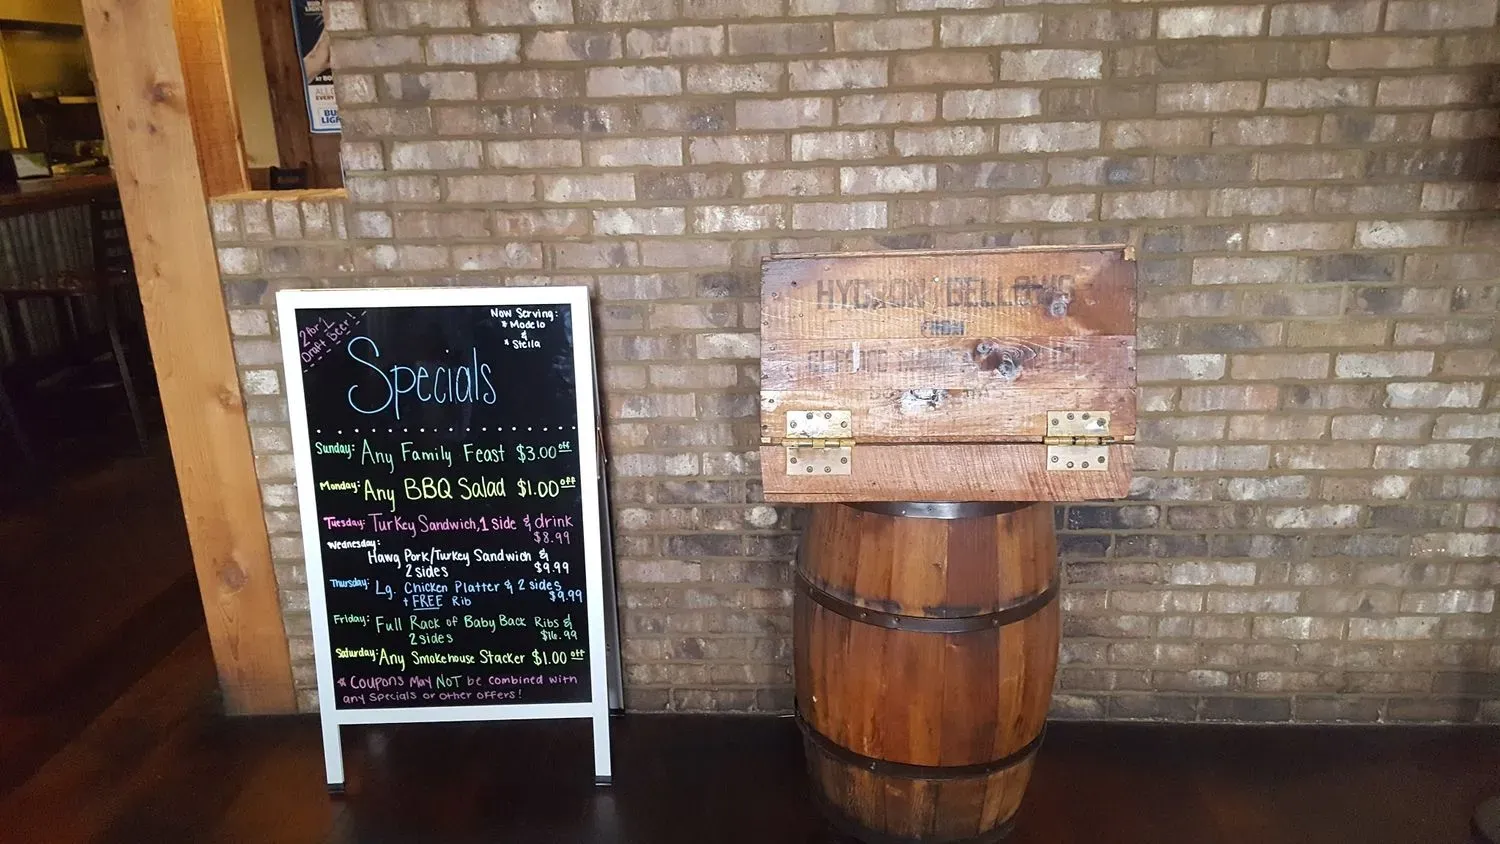 BUD
LIGHT
BUD
LIGH
2 for 1
Draft Beer!
Now Serving:
* Modelo
&
* Stella
Specials
Sunday: Any Family Feast $3.00 off
Monday: Any BBQ Salad $1.00 off
Tuesday: Turkey Sandwich, 1 side & drink
$8.99
Wednesday:
Hawg Pork/Turkey Sandwich &
2 sides $9.99
Thursday: Lg. Chicken Platter & 2 sides
+ FREE Rib $9.99
Friday: Full Rack of Baby Back Ribs &
2 sides $16.99
Saturday: Any Smokehouse Stacker $1.00 off
* Coupons May NOT be combined with
any Specials or other offers!
BELLOWS
FROM